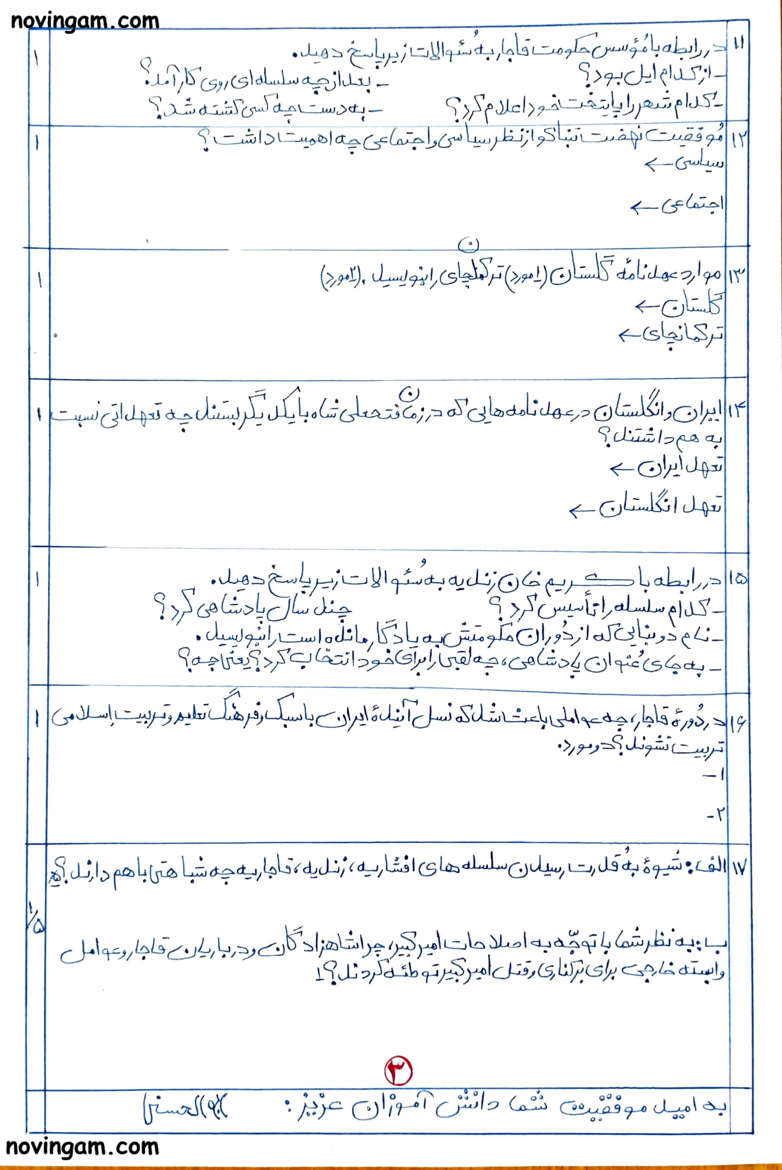 novingam.com
۱۱ در رابطه با مُؤسس حکومت قاجار به سُئوالات زیر پاسخ دهید. ۱
- از کدام ایل بود؟ - بعد از چه سلسله ای روی کار آمد؟
- کدام شهر را پایتخت خود اعلام کرد؟ - به دست چه کسی کشته شد؟
۱۲ مُوفقیت نهضت تنباکو از نظر سیاسی و اجتماعی چه اهمیت داشت؟ ۱
سیاسی ←
اجتماعی ←
۱۳ موارد عهدنامهٔ گلستان (۱مورد) ترکمانچای را بنویسید. (۲مورد) ۱
گلستان ←
ترکمانچای ←
۱۴ ایران و انگلستان در عهدنامه هایی که در زمان فتحعلی شاه با یکدیگر بستند چه تعهداتی نسبت ۱
به هم داشتند؟
تعهد ایران ←
تعهد انگلستان ←
۱۵ در رابطه با کریم خان زندیه به سُئوالات زیر پاسخ دهید. ۱
- کدام سلسله را تأسیس کرد؟ چند سال پادشاهی کرد؟
- نام دو بنایی که از دوران حکومتش به یادگار مانده است را بنویسید.
- به جای عُنوان پادشاهی، چه لقبی را برای خود انتخاب کرد؟ یعنی چه؟
۱۶ در دُورهٔ قاجار، چه عواملی باعث شد که نسل آیندهٔ ایران با سبک و فرهنگ تعلیم و تربیت اسلامی ۱
تربیت نشوند؟ دو مورد.
۱-
۲-
۱۷ الف: شیوهٔ به قدرت رسیدن سلسله های افشاریه، زندیه، قاجاریه چه شباهتی با هم دارند؟
۱/۵
ب: به نظر شما با توجّه به اصلاحات امیرکبیر، چرا شاهزادگان و درباریان قاجار و عوامل
وابسته خارجی برای برکناری و قتل امیرکبیر توطئه کردند؟ ۱
۳
به امید موفقیت شما دانش آموزان عزیز: ابوالحسنی
novingam.com